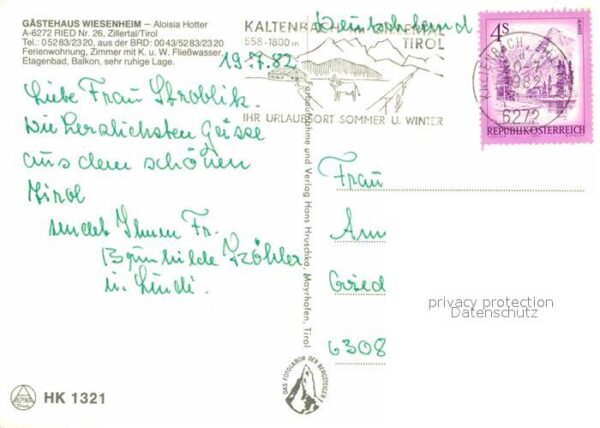 GÄSTEHAUS WIESENHEIM – Aloisia Hotter
A-6272 RIED Nr. 26, Zillertal/Tirol
Tel.: 05283/2320, aus der BRD: 0043/5283/2320
Ferienwohnung, Zimmer mit K. u. W. Fließwasser,
Etagenbad, Balkon, sehr ruhige Lage.
19.7.82
Liebe Frau Stroblik.
Die herzlichsten Grüsse
aus dem schönen
Tirol
sendet Ihnen Fr.
Brunhilde Köhler
u. Lindi.
HK 1321
KALTENBACH IM ZILLERTAL
TIROL
558-1800 m
IHR URLAUBSORT SOMMER U. WINTER
Deutschland
4 S
REPUBLIK ÖSTERREICH
KALTENBACH
6272
Farbaufnahme und Verlag Hans Hruschka, Mayrhofen, Tirol
DAS FOTOLABOR DER BERGSTEIGER
Frau
6308
privacy protection
Datenschutz